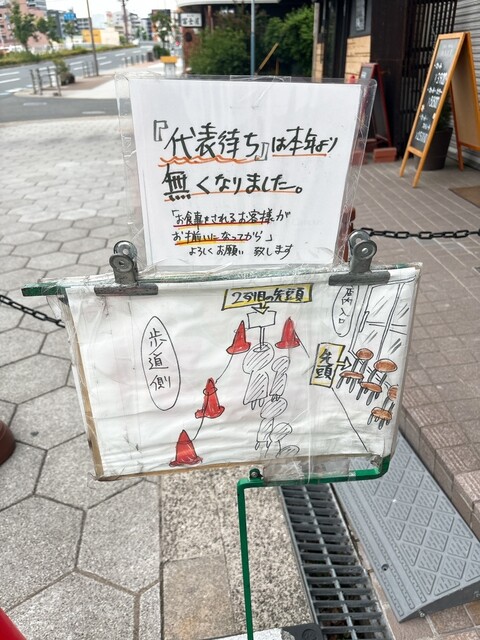 『代表待ち』は本年より
無くなりました。
「お食事をされるお客様が
お揃いになってから」
よろしくお願い致します
2列目の先頭
店内入口
歩道側
先頭